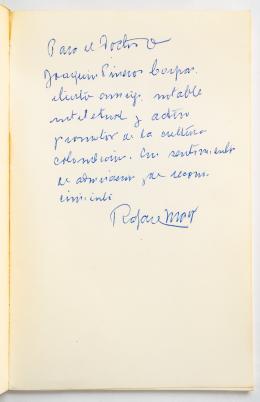 Para el Doctor
Joaquin Piñeros Corpas,
ilustre amigo, notable
intelectual y activo
promotor de la cultura
colombiana. Con sentimiento
de admiracion y de recono-
cimiento
Rafael